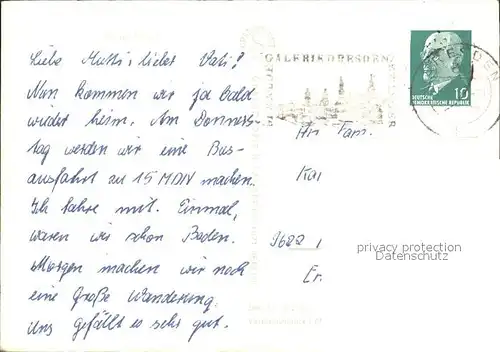 Liebe Mutti, lieber Vati!
Nun kommen wir ja bald
wieder heim. Am Donners-
tag werden wir eine Bus-
ausfahrt zu 15 MDN machen.
Ich fahre mit. Einmal,
waren wir schon Baden.
Morgen machen wir noch
eine Große Wanderung.
Uns gefällt es sehr gut.
GALERIE DRESDEN
DEUTSCHE
DEMOKRATISCHE REPUBLIK
10
An Fam.
Kar
9622
Er
privacy protection
Datenschutz